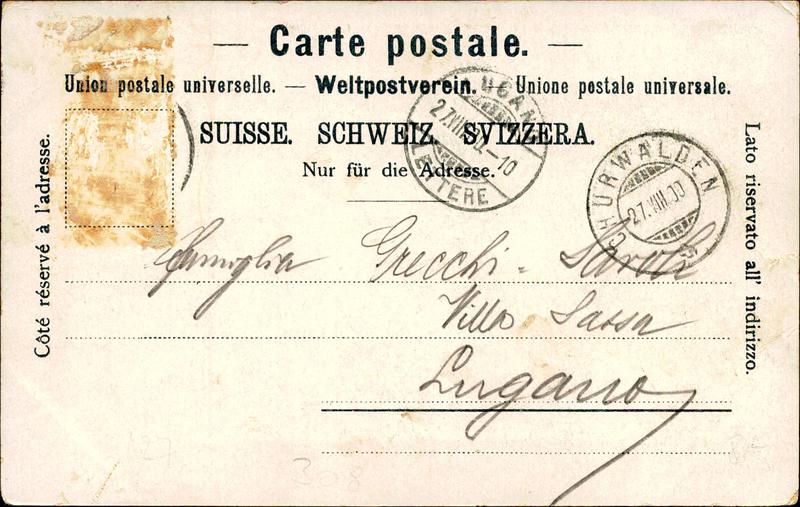 — Carte postale. —
Union postale universelle. — Weltpostverein. — Unione postale universale.
SUISSE. SCHWEIZ. SVIZZERA.
Nur für die Adresse.
Côté réservé à l'adresse.
Lato riservato all' indirizzo.
LUGANO
27.VIII.02.–10
LETTERE
CHURWALDEN
27.VIII.00
Famiglia Grecchi -
Villa Sassa
Lugano
308